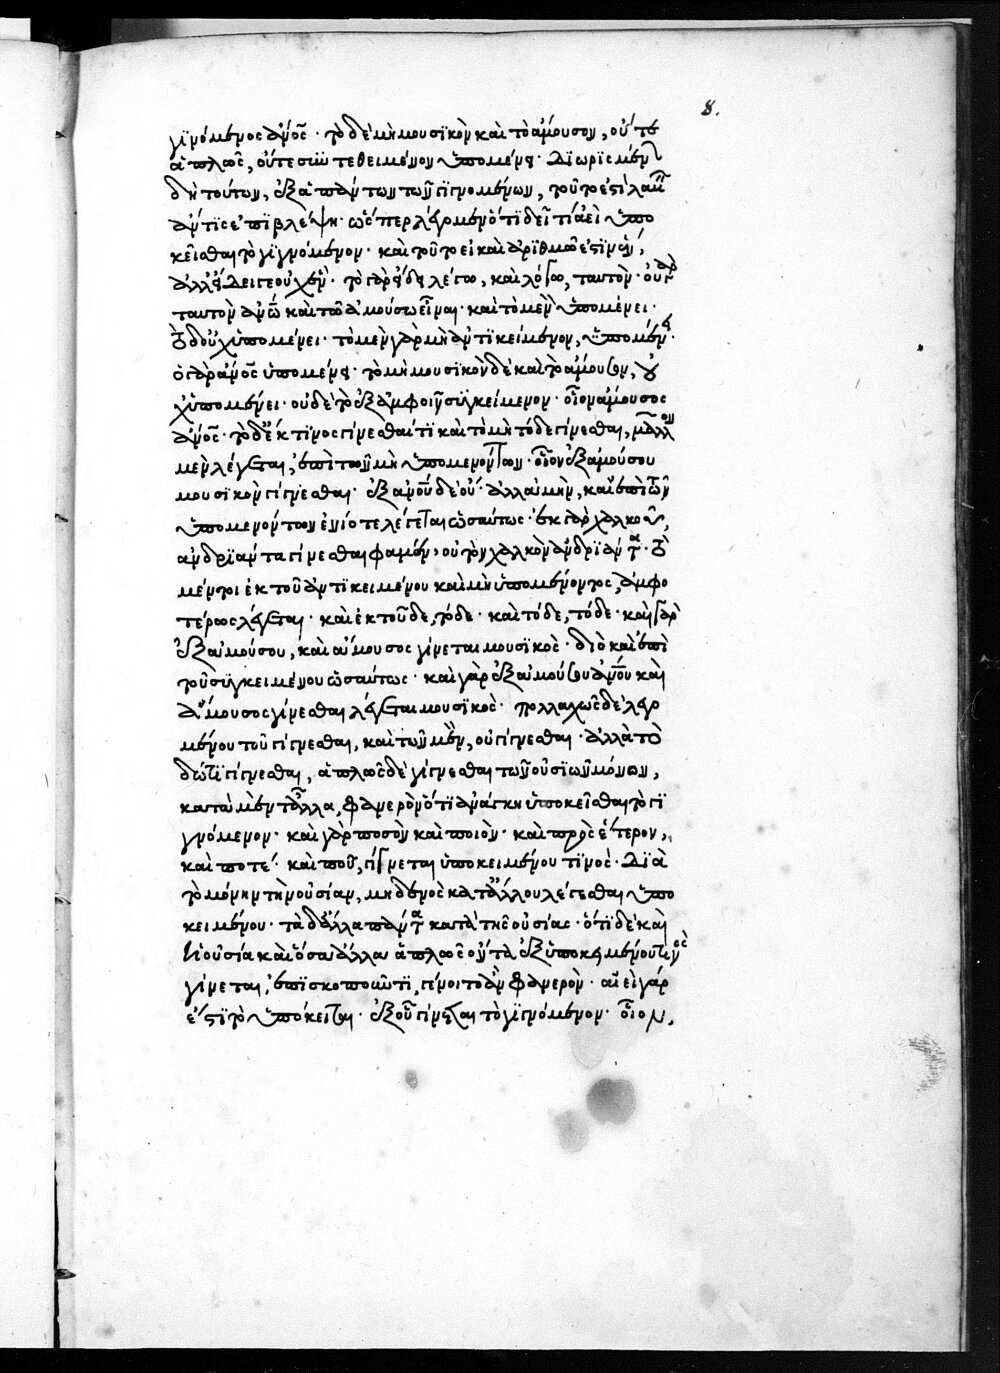 8.
γινόμενος ἄνος· τὸ δὲ μὴ μουσικὸν καὶ τὸ ἄμουσον, οὔτε
ἁπλῶς, οὔτε συντεθειμένον ὑπομένει· διωρισμένων
δὴ τούτων, ἐξ ἁπάντων τῶν γιγνομένων, τοῦτο ἔστι λαβεῖν
ἄν τις ἐπιβλέψη· ὥσπερ λέγομεν ὅτι δεῖ τι ἀεὶ ὑπο
κεῖσθαι τὸ γιγνόμενον· καὶ τοῦτο εἰ καὶ ἀριθμῷ ἐστιν ἕν,
ἀλλ' εἴδει γε οὐχ ἕν· τὸ γὰρ εἴδει λέγω, καὶ λόγω, ταυτόν· οὐ γὰρ
ταυτὸν ἀνω καὶ τῶ ἀμούσω εἶναι· καὶ τὸ μὲν ὑπομένει·
τὸ δ' οὐχ ὑπομένει· τὸ μὲν γὰρ μὴ ἀντικείμενον, ὑπομένει·
ὁ γὰρ ἄνος ὑπομένει· τὸ μὴ μουσικὸν δὲ καὶ τὸ ἄμουσον, οὐ
χ ὑπομένει· οὐδὲ τὸ ἐξ ἀμφοῖν συγκείμενον· οἷον ἄμουσος
ἄνος· τὸ δ' ἔκ τινος γίνεσθαί τι καὶ τὸ μὴ τόδε γίνεσθαι, μᾶλλον
μὲν λέγεται, ἐπὶ τῶν μὴ ὑπομενόντων· οἷον ἐξ ἀμούσου
μουσικὸν γίγνεσθαι· ἐξ ἀνου δὲ οὔ· ἀλλὰ μὴν, καὶ ἐπὶ τῶν
ὑπομενόντων ἐνίοτε λέγεται ὡσαύτως· ἐκ γὰρ χαλκοῦ,
ἀνδριάντα γίνεσθαι φαμέν, οὐ τὸν χαλκὸν ἀνδριάντα· τὸ
μέντοι ἐκ τοῦ ἀντικειμένου καὶ μὴ ὑπομένοντος, ἀμφο
τέρως λέγεται· καὶ ἐκ τοῦδε, τόδε· καὶ τόδε, τόδε· καὶ γὰρ
ἐξ ἀμούσου, καὶ ἄμουσος γίνεται μουσικός· διὸ καὶ ἐπὶ
τοῦ συγκειμένου ὡσαύτως· καὶ γὰρ ἐξ ἀμούσου ἀνου καὶ
ἄμουσος γίνεσθαι λέγεται μουσικός· πολλαχῶς δὲ λεγο
μένου τοῦ γίγνεσθαι, καὶ τῶν μὲν, οὐ γίγνεσθαι· ἀλλὰ τὸ
δέ τι γίγνεσθαι, ἁπλῶς δὲ γίγνεσθαι τῶν οὐσιῶν μόνων,
κατὰ μὲν τἄλλα, φανερὸν ὅτι ἀνάγκη ὑποκεῖσθαι τὸ γι
γνόμενον· καὶ γὰρ ποσὸν καὶ ποιὸν· καὶ πρὸς ἕτερον,
καὶ ποτέ· καὶ ποῦ, γίγνεται ὑποκειμένου τινὸς· διὰ
τὸ μόνην τὴν οὐσίαν, μηδενὸς κατ' ἄλλου λέγεσθαι ὑπο
κειμένου· τὰ δ' ἄλλα πάντα κατὰ τῆς οὐσίας· ὅτι δὲ καὶ
ἡ οὐσία καὶ ὅσα ἄλλα ἁπλῶς ὄντα ἐξ ὑποκειμένου τινὸς
γίνεται, ἐπισκοποῦντι, γένοιτο ἂν φανερόν· αἰεὶ γάρ
ἐστι τὸ ὑπόκειται· ἐξ οὗ γίνεται τὸ γιγνόμενον· οἷον,